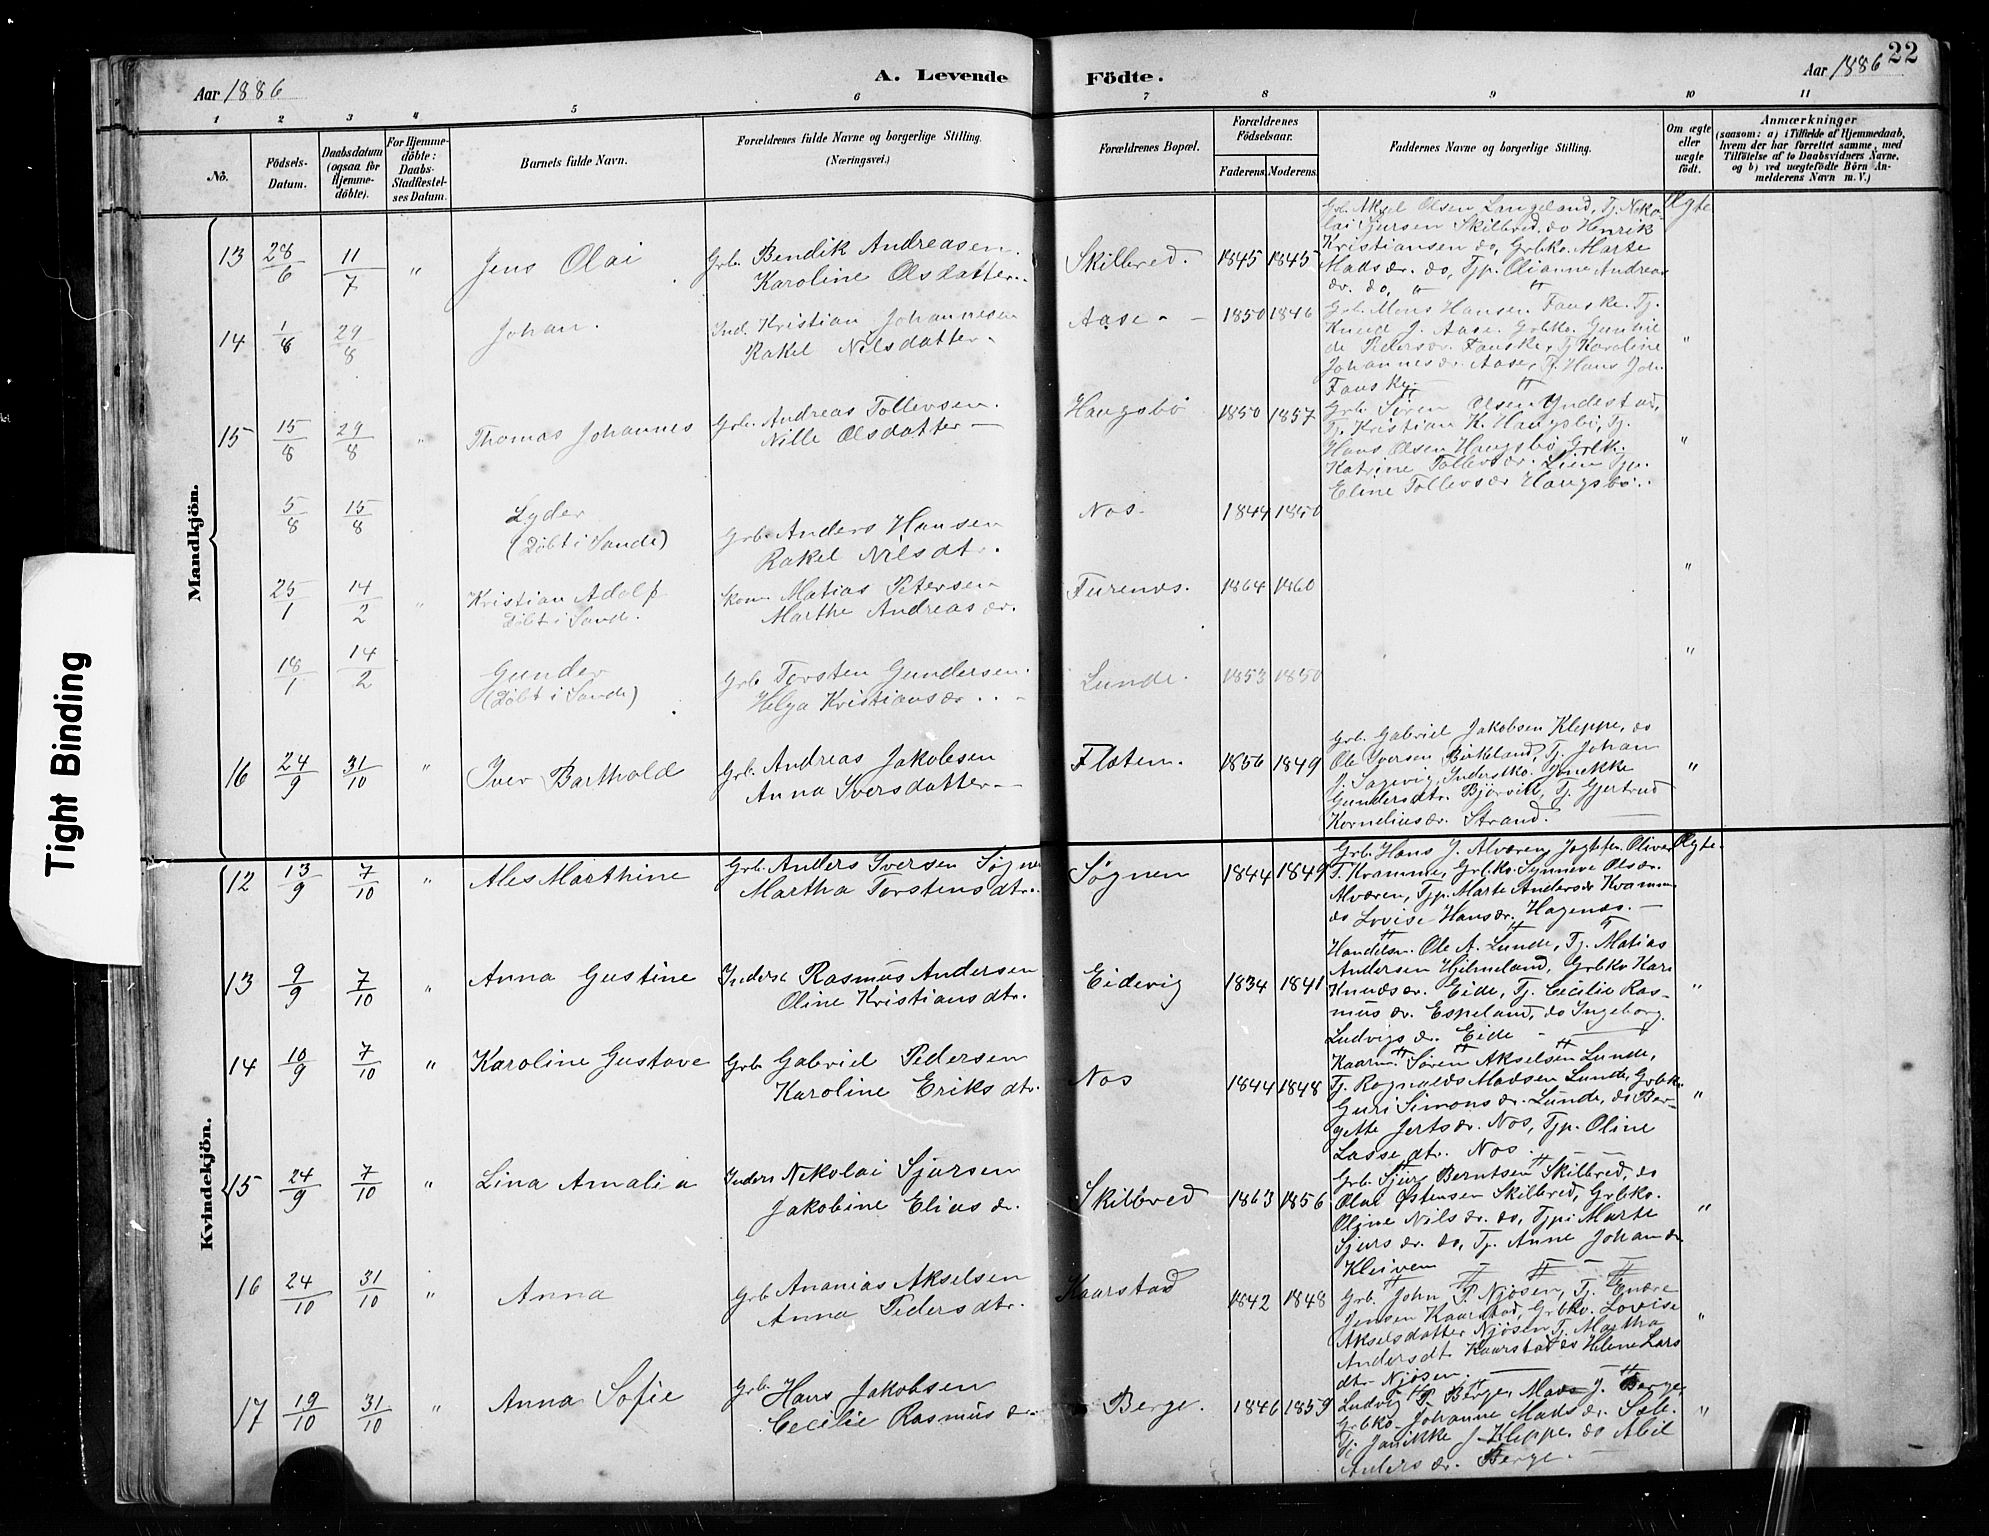 22
Aar 1886
A. Levende Födte.
Aar 1886
1 2 3 4 5 6 7 8 9 10 11
No.
Födsels-Datum.
Daabsdatum (ogsaa for Hjemme-döbte).
For Hjemme-döbte: Daabs-Stadfæstel-ses Datum.
Barnets fulde Navn.
Forældrenes fulde Navne og borgerlige Stilling.
(Næringsvei.)
Forældrenes Bopæl.
Forældrenes Födselsaar.
Faderens Moderens
Faddernes Navne og borgerlige Stilling.
Om ægte eller uægte födt.
Anmærkninger
(saasom: a) i Tilfælde af Hjemmedaab,
hvem der har forrettet samme, med
Tilföielse af to Daabsvidners Navne,
og b) ved uægtefödte Börn An-
melderens Navn m. V.)
Mandkjön.
13 28/6 11/7 " Jens Olai Grb. Bendik Andreasen Karoline Olsdatter Skilbred. 1845 1845 Ægte
Grb. Aksel Olsen Langeland, Tj. Niko-
lai Sjursen Skilbred, do Henrik
Kristiansen do, Grbko. Marte
Madsdr. do, Tjp. Olianne Andreas
dr. do, " "
14 1/8 29/8 Johan. Ind. Kristian Johannesen Rakel Nilsdatter Aase 1850 1846 "
Grb. Mons Hansen Fauske. Tj.
Knud J. Aase. Grbko. Gunhil
de Pedersdr. Fauske, Tj Karoline
Johannesdr. Aase, Tj. Hans Joh.
Fauske
15 15/8 29/8 " Thomas Johannes Grb. Andreas Tollevsen. Nille Olsdatter Haugsbö 1850 1857 "
Grb. Sören Olsen Yndestad,
Tj. Kristian K. Haugsbö, Tj.
Hans Olsen Haugsbö, Grbk.
Katrine Tollevsdr. Lien Tjp.
Eline Tollevsdr Haugsbö.
5/8 15/8 Lyder (Döbt i Sande) Grb. Anders Hansen Rakel Nilsdtr. Nos 1844 1850 "
25/1 14/2 " Kristian Adolf Döbt i Sande. Matias Petersen Marthe Andreasdr. Furenes. 1864 1860 "
18/1 14/2 Gunder (Döbt i Sande) Grb Torsten Gundersen. Helga Kristiansdr. Lunde. 1853 1850
16 24/9 31/10 " Iver Barthold Grb. Andreas Jakobsen Anna Iversdatter Flöten. 1856 1849 "
Grb. Gabriel Jakobsen Kleppe, do
Ole Iversen Birkeland, Tj. Johan
J. Sagevig, Inderstko. Jonekke
Gundersdtr. Björvik, Tj. Gjertrud
Korneliusdr. Strand.
Kvindekjön.
12 13/9 7/10 " Ales Marthine Grb. Anders Iversen Søgnen Martha Torstensdtr. Søgnen 1844 1849 Ægte.
Grb. Hans J. Alværen, Jagtsfør. Oliver
T. Kvamme, Grbko. Synneve Olsdr.
Alværen, Tjp. Marte Andersdr Kvamme
do Lovise Hansdr. Hagenæs.
13 9/9 7/10 " Anna Gustine Inderst Rasmus Andersen Oline Kristiansdtr. Eidevig 1834 1841 "
Handelsm. Ole A. Lunde, Tj. Matias
Andersen Hjelmeland, Grbko Kari
Knudsdr. Eide, Tj. Cecilie Ras-
musdr. Espeland, do Ingeborg
Ludvigsdr. Eide
14 10/9 7/10 " Karoline Gustave Grb Gabriel Pedersen Karoline Eriksdtr. Nos 1844 1848 "
Kaarm. Sören Akselsen Lunde,
Tj. Rognalds Madsen Lunde, Grbko.
Guri Simonsdr. Lunde, do Ber-
gette Jertsdr. Nos, Tjp. Oline
Lassedtr. Nos.
15 24/9 7/10 " Lina Amalia Inders Nikolai Sjursen Jakobine Eliasdr. Skilbred 1863 1856 "
Grb. Sjur Berntsen Skilbred, do
Olai Østensen Skilbred, Grbko.
Oline Nilsdr. do, Tjp. Marte
Sjursdr. do, Tj. Anne Johandr
Kleiven
16 24/10 31/10 " Anna Grb Ananias Akselsen Anna Pedersdtr. Kaarstad 1842 1848 "
Grb. John P. Njösen, Tj. Endre
Jensen Kaarstad, Grbko. Lovise
Akselsdatter Njösen Tj. Martha
Andersdt. Kaarstad do Helene Lars
dtr Njösen.
17 19/10 31/10 " Anna Sofie Grb. Hans Jakobsen Cecilie Rasmusdr. Berge. 1846 1859 "
Ludvig P. Berge, Mads J. Berge,
Grbko Johanne Madsdr. Sæle.
Tj. Janikke J. Kleppe, do Abel
Andersdr. Berge.
Tight Binding